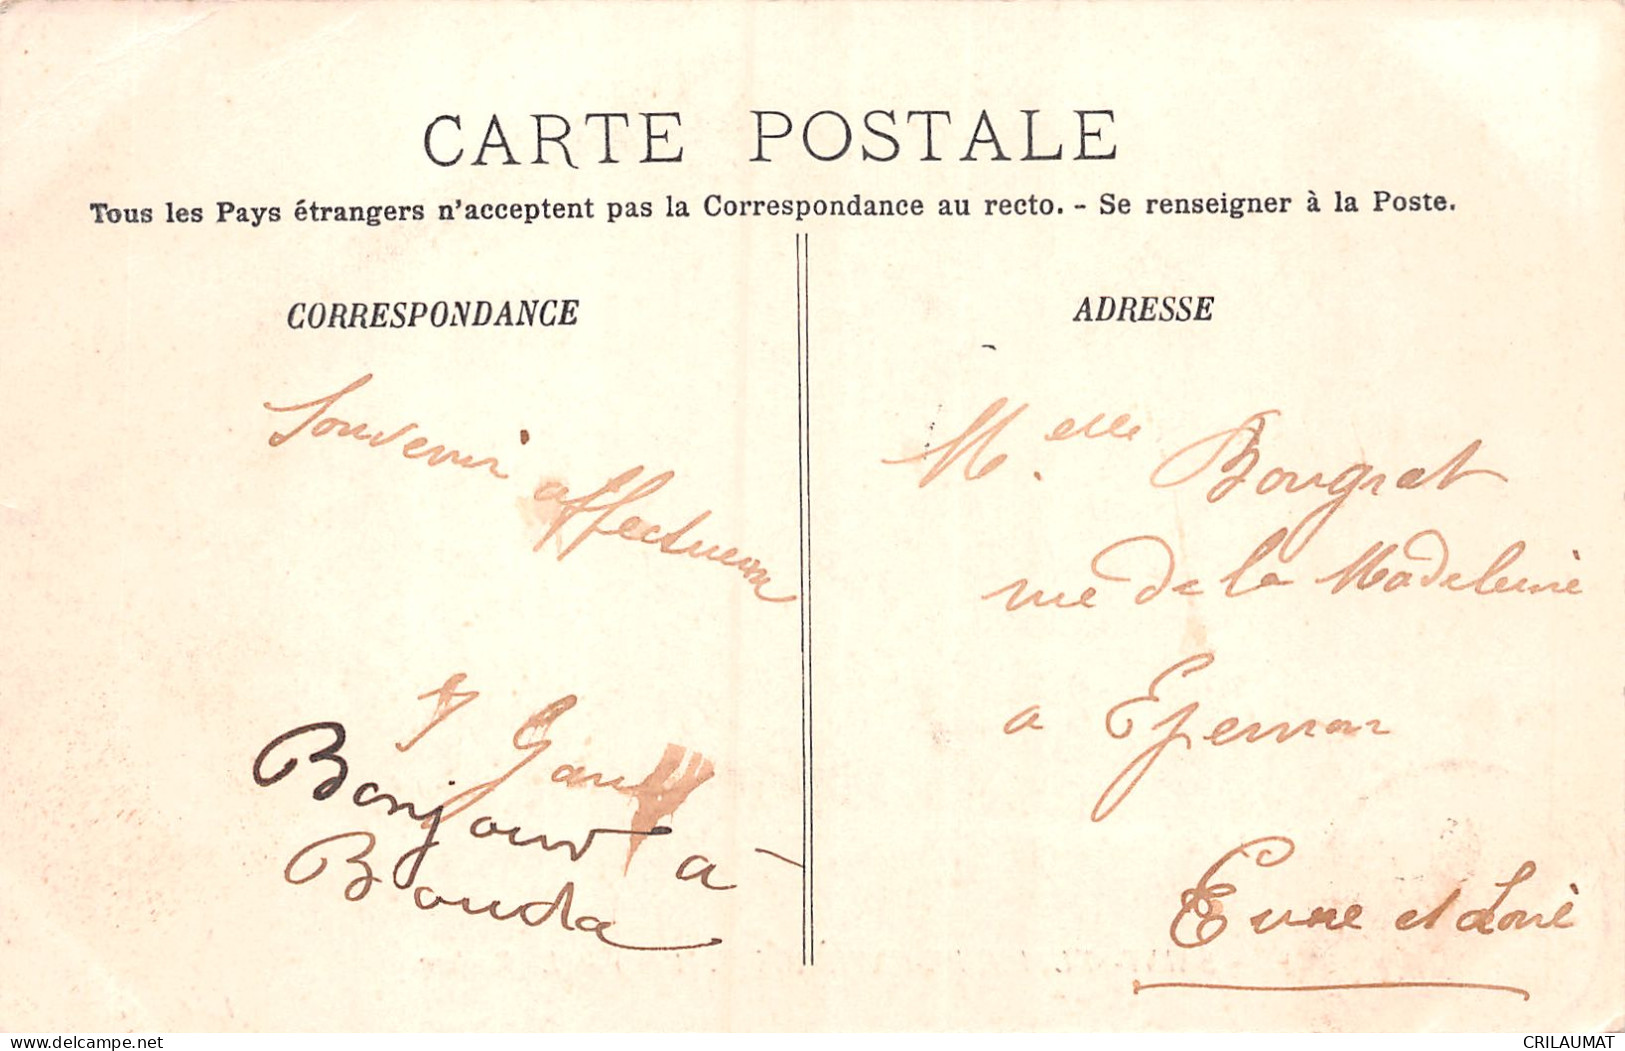 CARTE POSTALE
Tous les Pays étrangers n'acceptent pas la Correspondance au recto. - Se renseigner à la Poste.
CORRESPONDANCE
Souvenir affectueux
Gault
Bonjour à
Bouda
ADRESSE
M.elle Bougrat
rue de la Madeleine
a Epernon
Eure et Loire
delcampe.net
CRILAUMAT